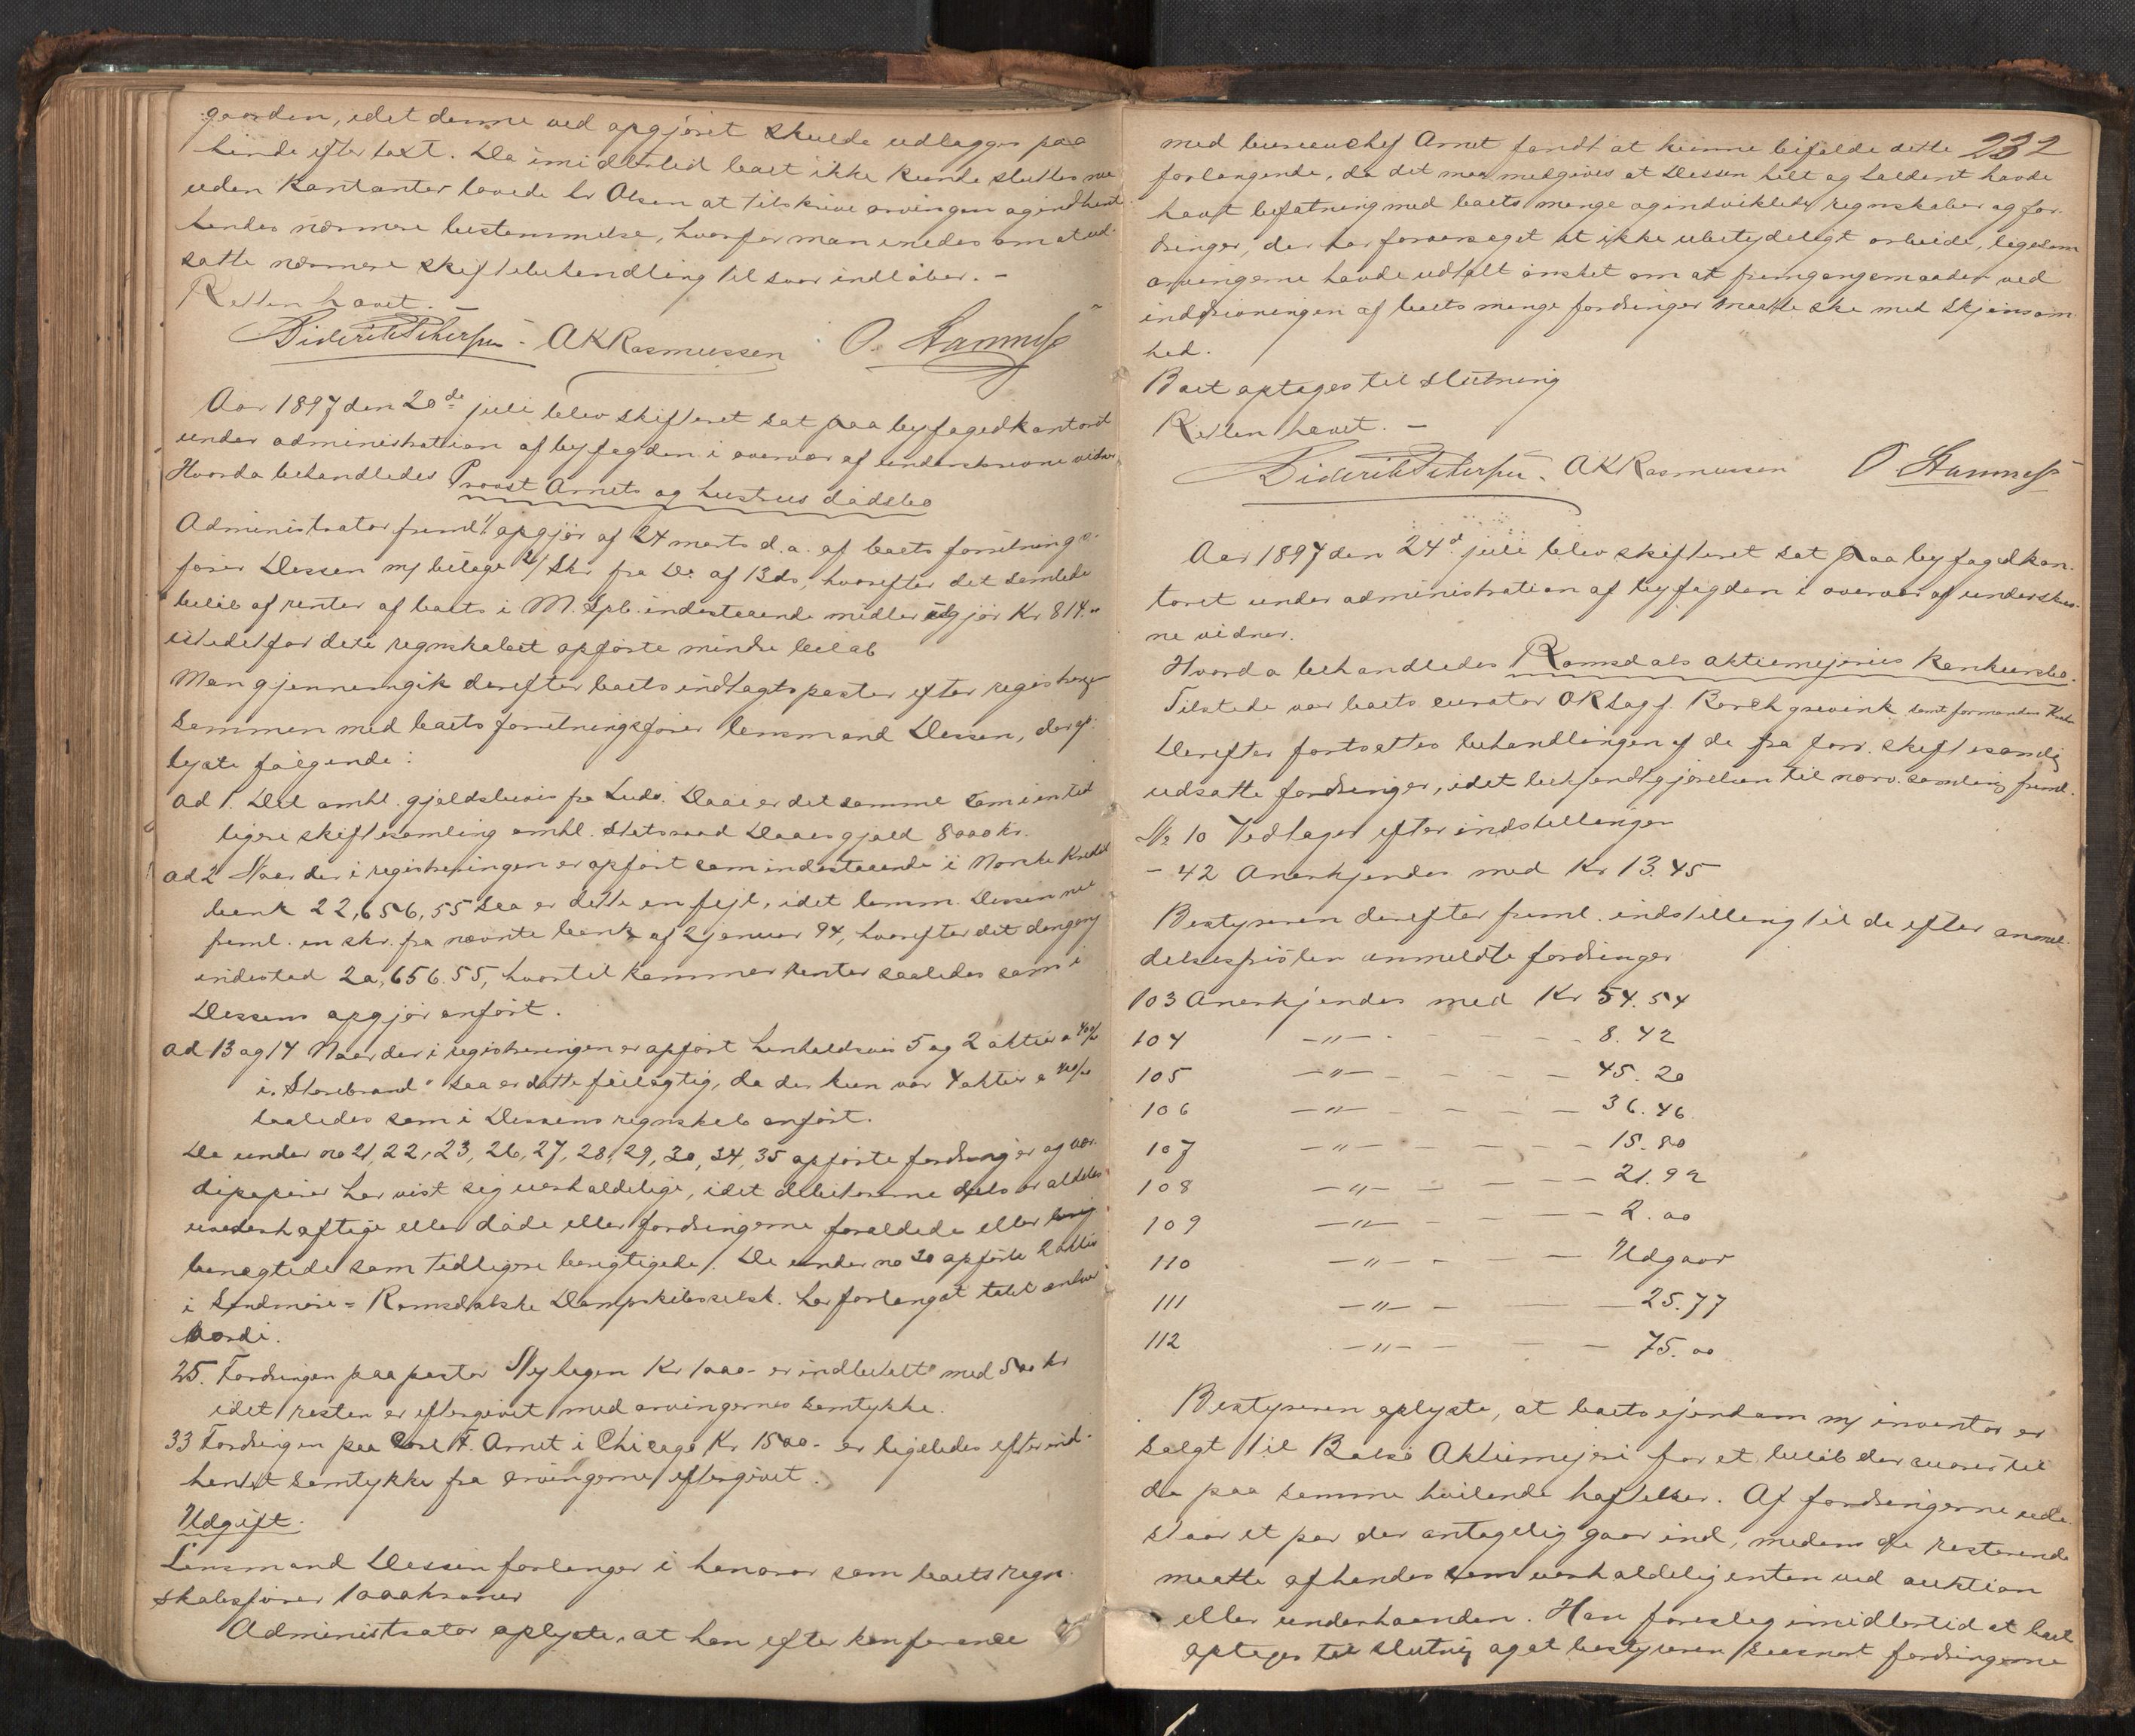 gaarden, idet denne ved opgjøret skulde udlægges paa
hende efter taxt. Da imidlertid boet ikke kunde sluttes nu
uden Kontanter lovede hr Olsen at tilskrive arvingen og indhente
hendes nærmere bestemmelse, hvorfor man enedes om at ud-
satte nærmere skiftebehandling til svar indløber. -
Retten hævet. -
Diderik Petersen - AKRasmussen O. Hamnes
Aar 1897 den 20de juli blev skifteret sat paa byfogedkontoret
under administration af byfogden i overvær af underskrevne vidner
Hvorda behandledes Provst Arnets og hustrus dødsbo
Administrator freml. 1/ opgjør af 24 marts d.a. af boets forretnings-
fører Dessen m/ bilage 2/ Skr fra Do af 13 ds, hvorefter det samlede
beløb af renter af boets i M. Spb. indestaaende midler udgjør Kr 814.00
istedetfor det i regnskabet opførte mindre beløb
Man gjennemgik derefter boets indtægtsposter efter registreringen
sammen med boets forretningsfører lensmand Dessen, der op-
lyste følgende:
ad 1. Det omhl. gjeldsbevis fra Ludv. Daae er det samme som i en tid
ligere skiftesamling omhl. Statsraad Daaes gjæld 8000 kr.
ad 2 Naar der i registreringen er opført som indestaaende i Norske Kredit
bank 22,656,55 saa er dette en fejl, idet lensm. Dessen nu
freml. en skr. fra nævnte bank af 2 januar 94, hvorefter det dengang
indestod 20,656.55, hvortil kommer renter saaledes som i
Dessens opgjør anført.
ad 13 og 14 Naar der i registreringen er opført henholdsvis 5 og 2 aktier a 400/00
i "Storebrand" saa er dette feilagtig, da der kun var 4 aktier a 400/00
saaledes som i Dessens regnskab anført.
De under no 21, 22, 23, 26, 27, 28, 29, 30, 34, 35 opførte fordringer og vær-
dipapirer har vist sig uerholdelige, idet debitorerne dels er aldeles
uvederhæftige eller døde eller fordringerne forældede eller
benægtede som tidligere berigtigede. De under no 20 opførte 2 aktier
i Søndmøre-Romsdalske Dampskibsselsk. har forlængst tabt enhver
værdi.
25. Fordringen paa pastor Nyhagen Kr 1000- er indbetalt med 500 kr
idet resten er eftergivet med arvingernes samtykke.
33 Fordringen paa Carl F. Arnet i Chicago Kr. 1500- er ligeledes efter ind-
hentet samtykke fra arvingerne eftergivet.
Udgift.
Lensmand Dessen forlanger i honorar som boets regn-
skabsfører 1000 kroner
Administrator oplyste, at han efter konference
232
med bureauchef Arnet fandt at kunne bifalde dette
forlangende, da det maa medgives at Dessen helt og holdent havde
havt befatning med boets mange og indviklede regnskaber og for-
dringer, der har foraarsaget et ikke ubetydeligt arbeide, ligesom
arvingerne havde udtalt ønsket om at fremgangsmaaden ved
inddrivningen af boets mange fordringer maatte ske med Skjønsom-
hed.
Boet optages til slutning
Retten hævet. -
Diderik Petersen. AKRasmussen O Hamnes
Aar 1897 den 24d. juli blev skifteret sat paa byfogedkon-
toret under administration af byfogden i overvær af underskrev-
ne vidner.
Hvorda behandledes Romsdals aktiemejeries Konkursbo.
Tilstede var boets curator ORsagf. Borchgrevink samt formanden
Derefter fortsattes behandlingen af de fra forr. skiftesamling
udsatte fordringer, idet bekjendtgjørelsen til nærv. samling freml.
No 10 Vedtages efter indstillingen
- 42 Anerkjendes med Kr 13.45
Bestyreren derefter freml. indstilling til de efter anmel-
delsesfristen anmeldte fordringer
103 Anerkjendes med Kr 54.54
104 -"- - - - 8.42
105 -"- - - - 45.20
106 -"- - - - 36.46
107 -"- - - - 15.80
108 -"- - - - 21.92
109 -"- - - - 2.00
110 -"- - - Udgaar
111 -"- - - - 25.77
112 -"- - - 75.00
Bestyreren oplyste, at boets ejendom m/ inventar er
solgt til Bolsø Aktiemejeri for et beløb der svarer til
de paa samme hvilende hæftelser. Af fordringerne ude-
staar et par der antagelig gaar ind, medens de resterende
maatte afhændes som uerholdelig enten ved auktion
eller underhaanden. Han foreslog imidlertid at boet
optages til slutning og at bestyreren saasnart fordringerne